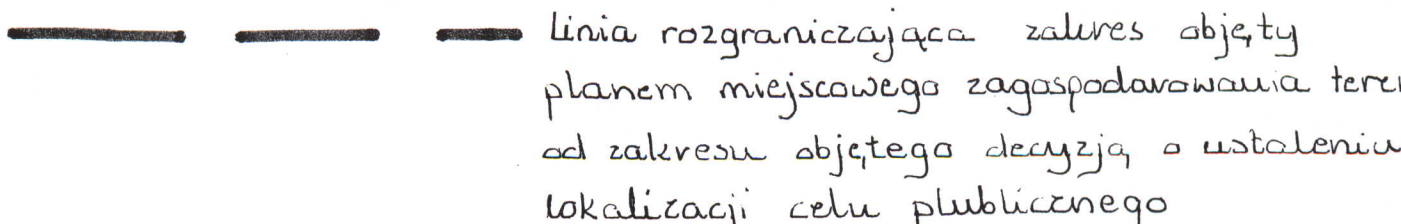 Linia rozgraniczająca zakres objęty
planem miejscowego zagospodarowania tere
od zakresu objętego decyzją o ustaleniu
lokalizacji celu plublicznego